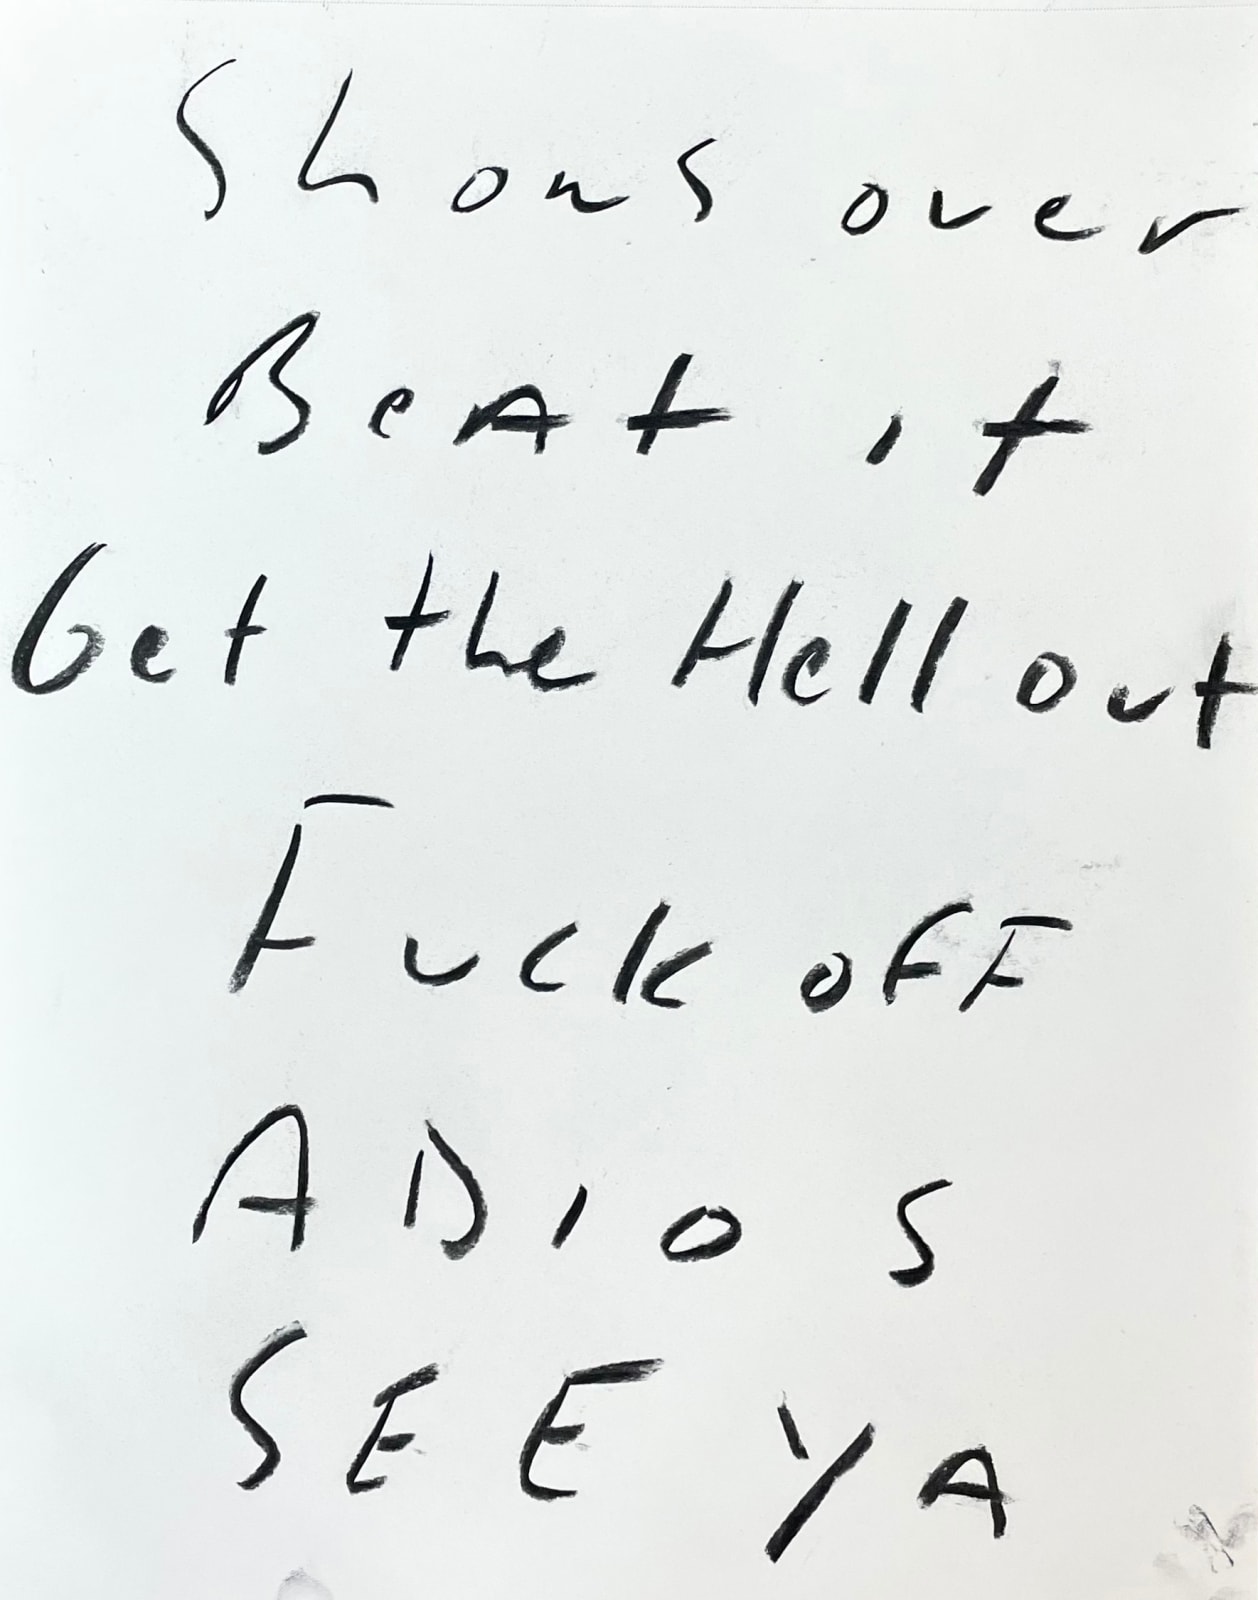 Shows over
BeAt it
Get the Hell out
Fuck oFF
ADIOS
SEE YA